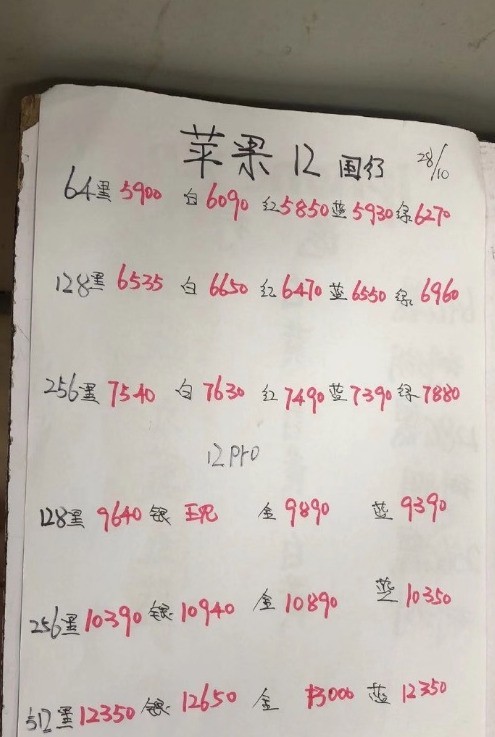 苹果 12 国行 28/10
64黑 5900 白 6090 红 5850 蓝 5930 绿 6270
128黑 6535 白 6650 红 6470 蓝 6550 绿 6960
256黑 7540 白 7630 红 7490 蓝 7390 绿 7880
12 Pro
128黑 9640 银 金 9890 蓝 9390
256黑 10390 银 10940 金 10890 蓝 10350
512黑 12350 银 12650 金 13000 蓝 12350